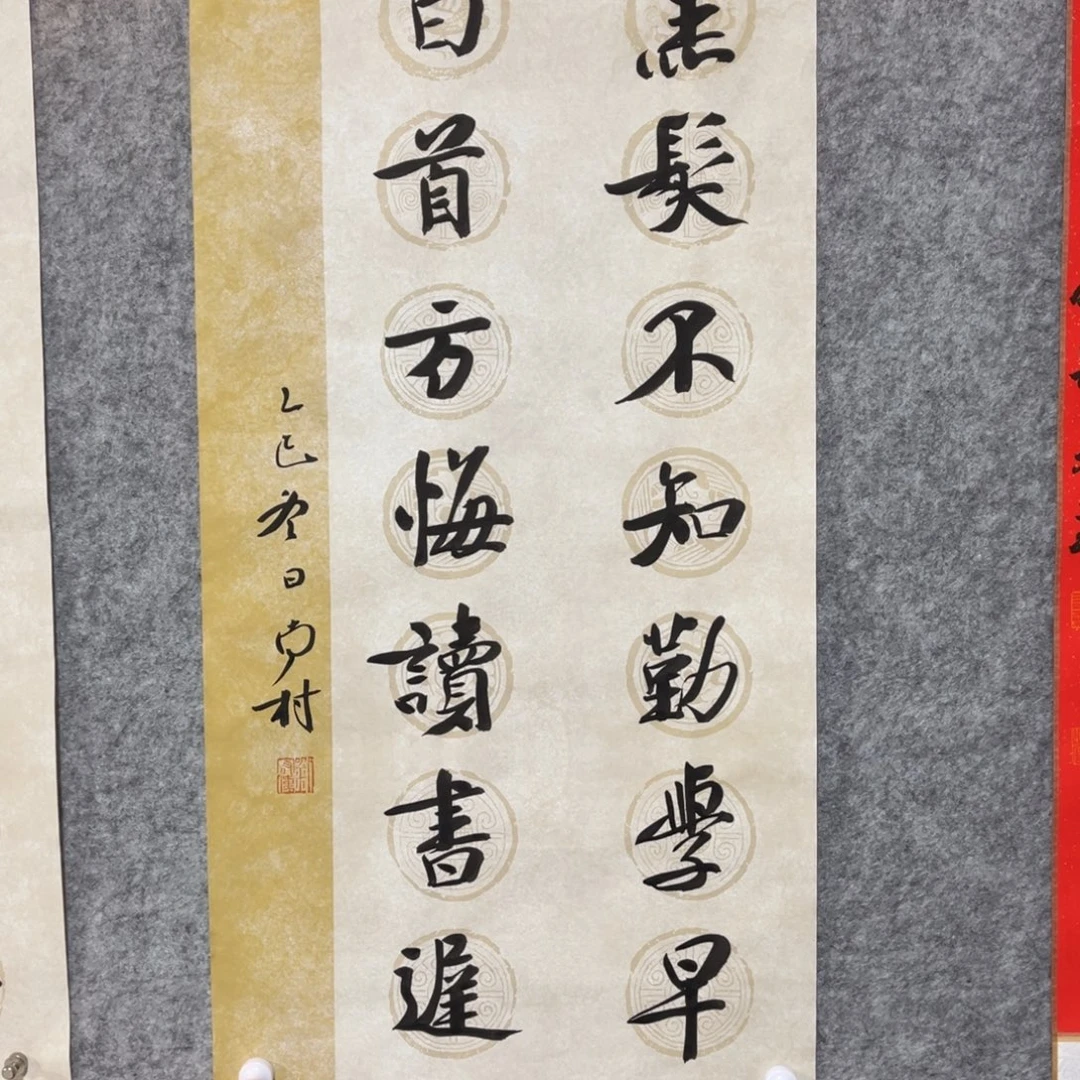 黑髮不知勤學早
白首方悔讀書遲
乙巳冬日尚村